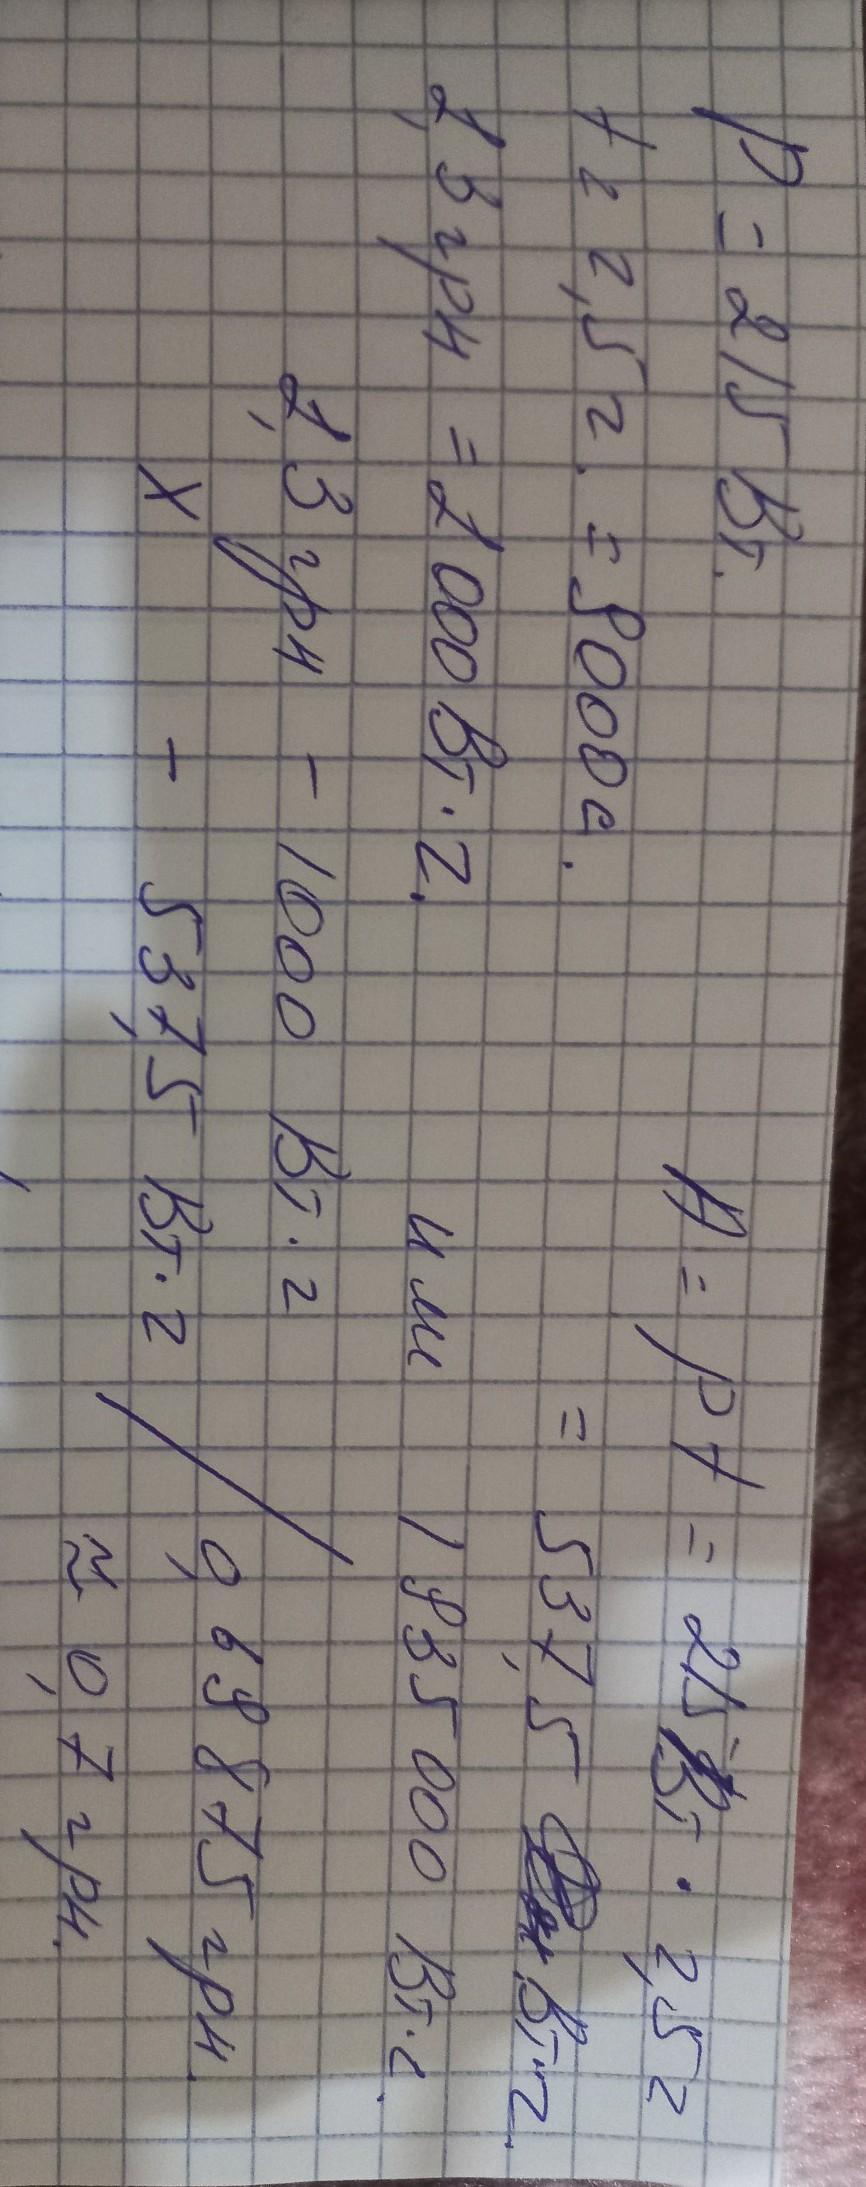 P = 215 Вт.
t = 2,5 г. = 9000 с.
1,3 грн = 1000 Вт·г.
1,3 грн – 1000 Вт·г
X – 537,5 Вт·г
A = pt = 215 Вт · 2,5 г
= 537,5 Вт·г.
или 1935000 Вт·с.
0,69875 грн.
≈ 0,7 грн.